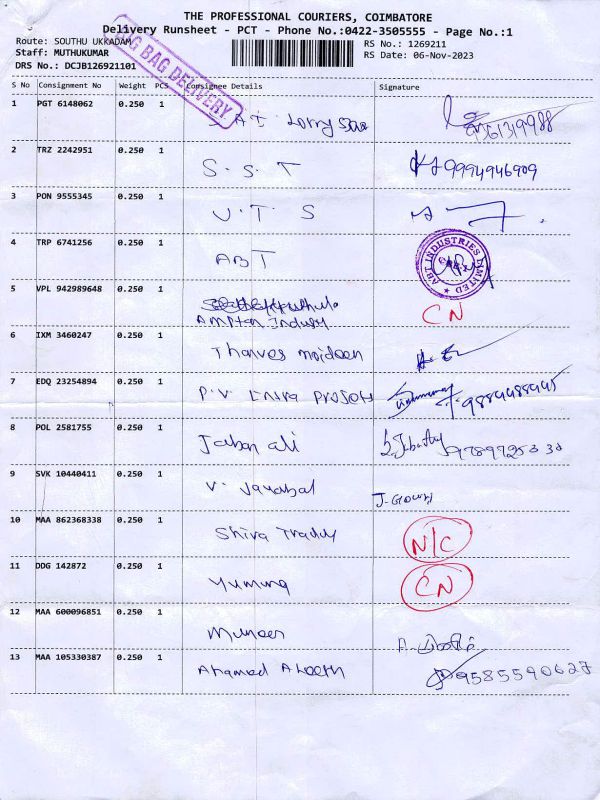 THE PROFESSIONAL COURIERS, COIMBATORE
Delivery Runsheet - PCT - Phone No.:0422-3505555 - Page No.:1
Route: SOUTHU UKKADAM
RS No.: 1269211
Staff: MUTHUKUMAR
RS Date: 06-Nov-2023
DRS No.: DCJB126921101
BAG DELIVERY
S No Consignment No Weight PCS Consignee Details Signature
1 PGT 6148062 0.250 1 A T Lorry
2 TRZ 2242951 0.250 1 S. S. T 9994946909
3 PON 9555345 0.250 1 U. T. S
4 TRP 6741256 0.250 1 ABT
ABT INDUSTRIES LIMITED
5 VPL 942989648 0.250 1 CN
6 IXM 3460247 0.250 1 Thanves moideen
7 EDQ 23254894 0.250 1 P. V. Projets
8 POL 2581755 0.250 1 ali
9 SVK 10440411 0.250 1 V. J. Gowri
10 MAA 862368338 0.250 1 Shiva N/C
11 DDG 142872 0.250 1 CN
12 MAA 600096851 0.250 1 Muneer
13 MAA 105330387 0.250 1 Ahamed 9585590627